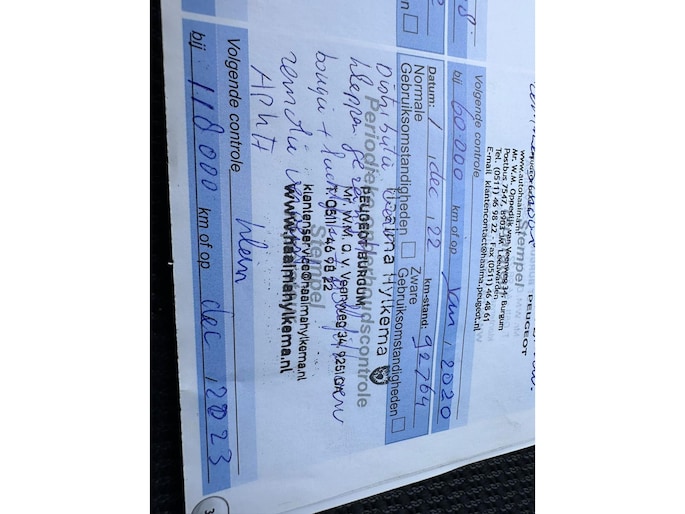 www.autohaaima.nl
Mr. W.M. Oppedijk van Veenweg 34, Burgum
Postbus 7547, 8903 JM Leeuwarden
Tel. (0511) 46 98 22 - Fax (0511) 46 48 61
E-mail klantencontact@haaima.peugeot.nl
PEUGEOT
Stempel
Volgende controle
bij 60.000 km of op Jan, 2020
Datum: 1, dec, 22 km-stand: 92764
Normale Gebruiksomstandigheden
Zware Gebruiksomstandigheden
Periodieke onderhoudscontrole
Haaima Hylkema
PEUGEOT BURGUM
Mr. W.M. O. v. Veenweg 34, 9251
T. 0511 - 46 98 22
klantenservice@haaimahylkema.nl
www.haaimahylkema.nl
Stempel
Distributie
kleppen
bougie +
APK
Volgende controle klein
bij 118000 km of op dec, 2023
3